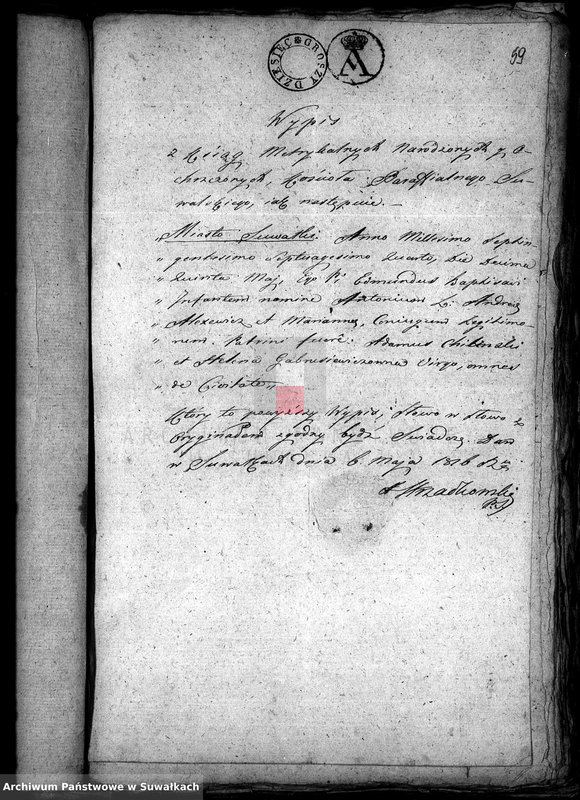 GROSZY DZIESIĘĆ
A
59
Wypis
z Xiąg Metrykalnych Narodzonych y O-
chrzczonych, Kościoła Paraffialnego Su-
walskiego, iak następuie. —
„ Miasto Suwałki. Anno Millesimo Septin-
„ gentesimo Septuagesimo Quarto, Die Decima
„ Quinta Maj, Edmundus Baptisavi
„ Infantem nomine Antonium L. Andreæ
„ Alexewicz et Mariannæ, Coniugum Legitimo-
„ rum. Patrini fuere: Adamus Chilinski
„ et Helena Gabrusiewiczowna Virgo, omnes
„ de Civitate „
Ktory to powyższy Wypis, słowo w słowo z
Oryginałem zgodny bydź Swiadczę. Dan
w Suwałkach dnia 6. Maja 1816 Rku
Archiwum Państwowe w Suwałkach